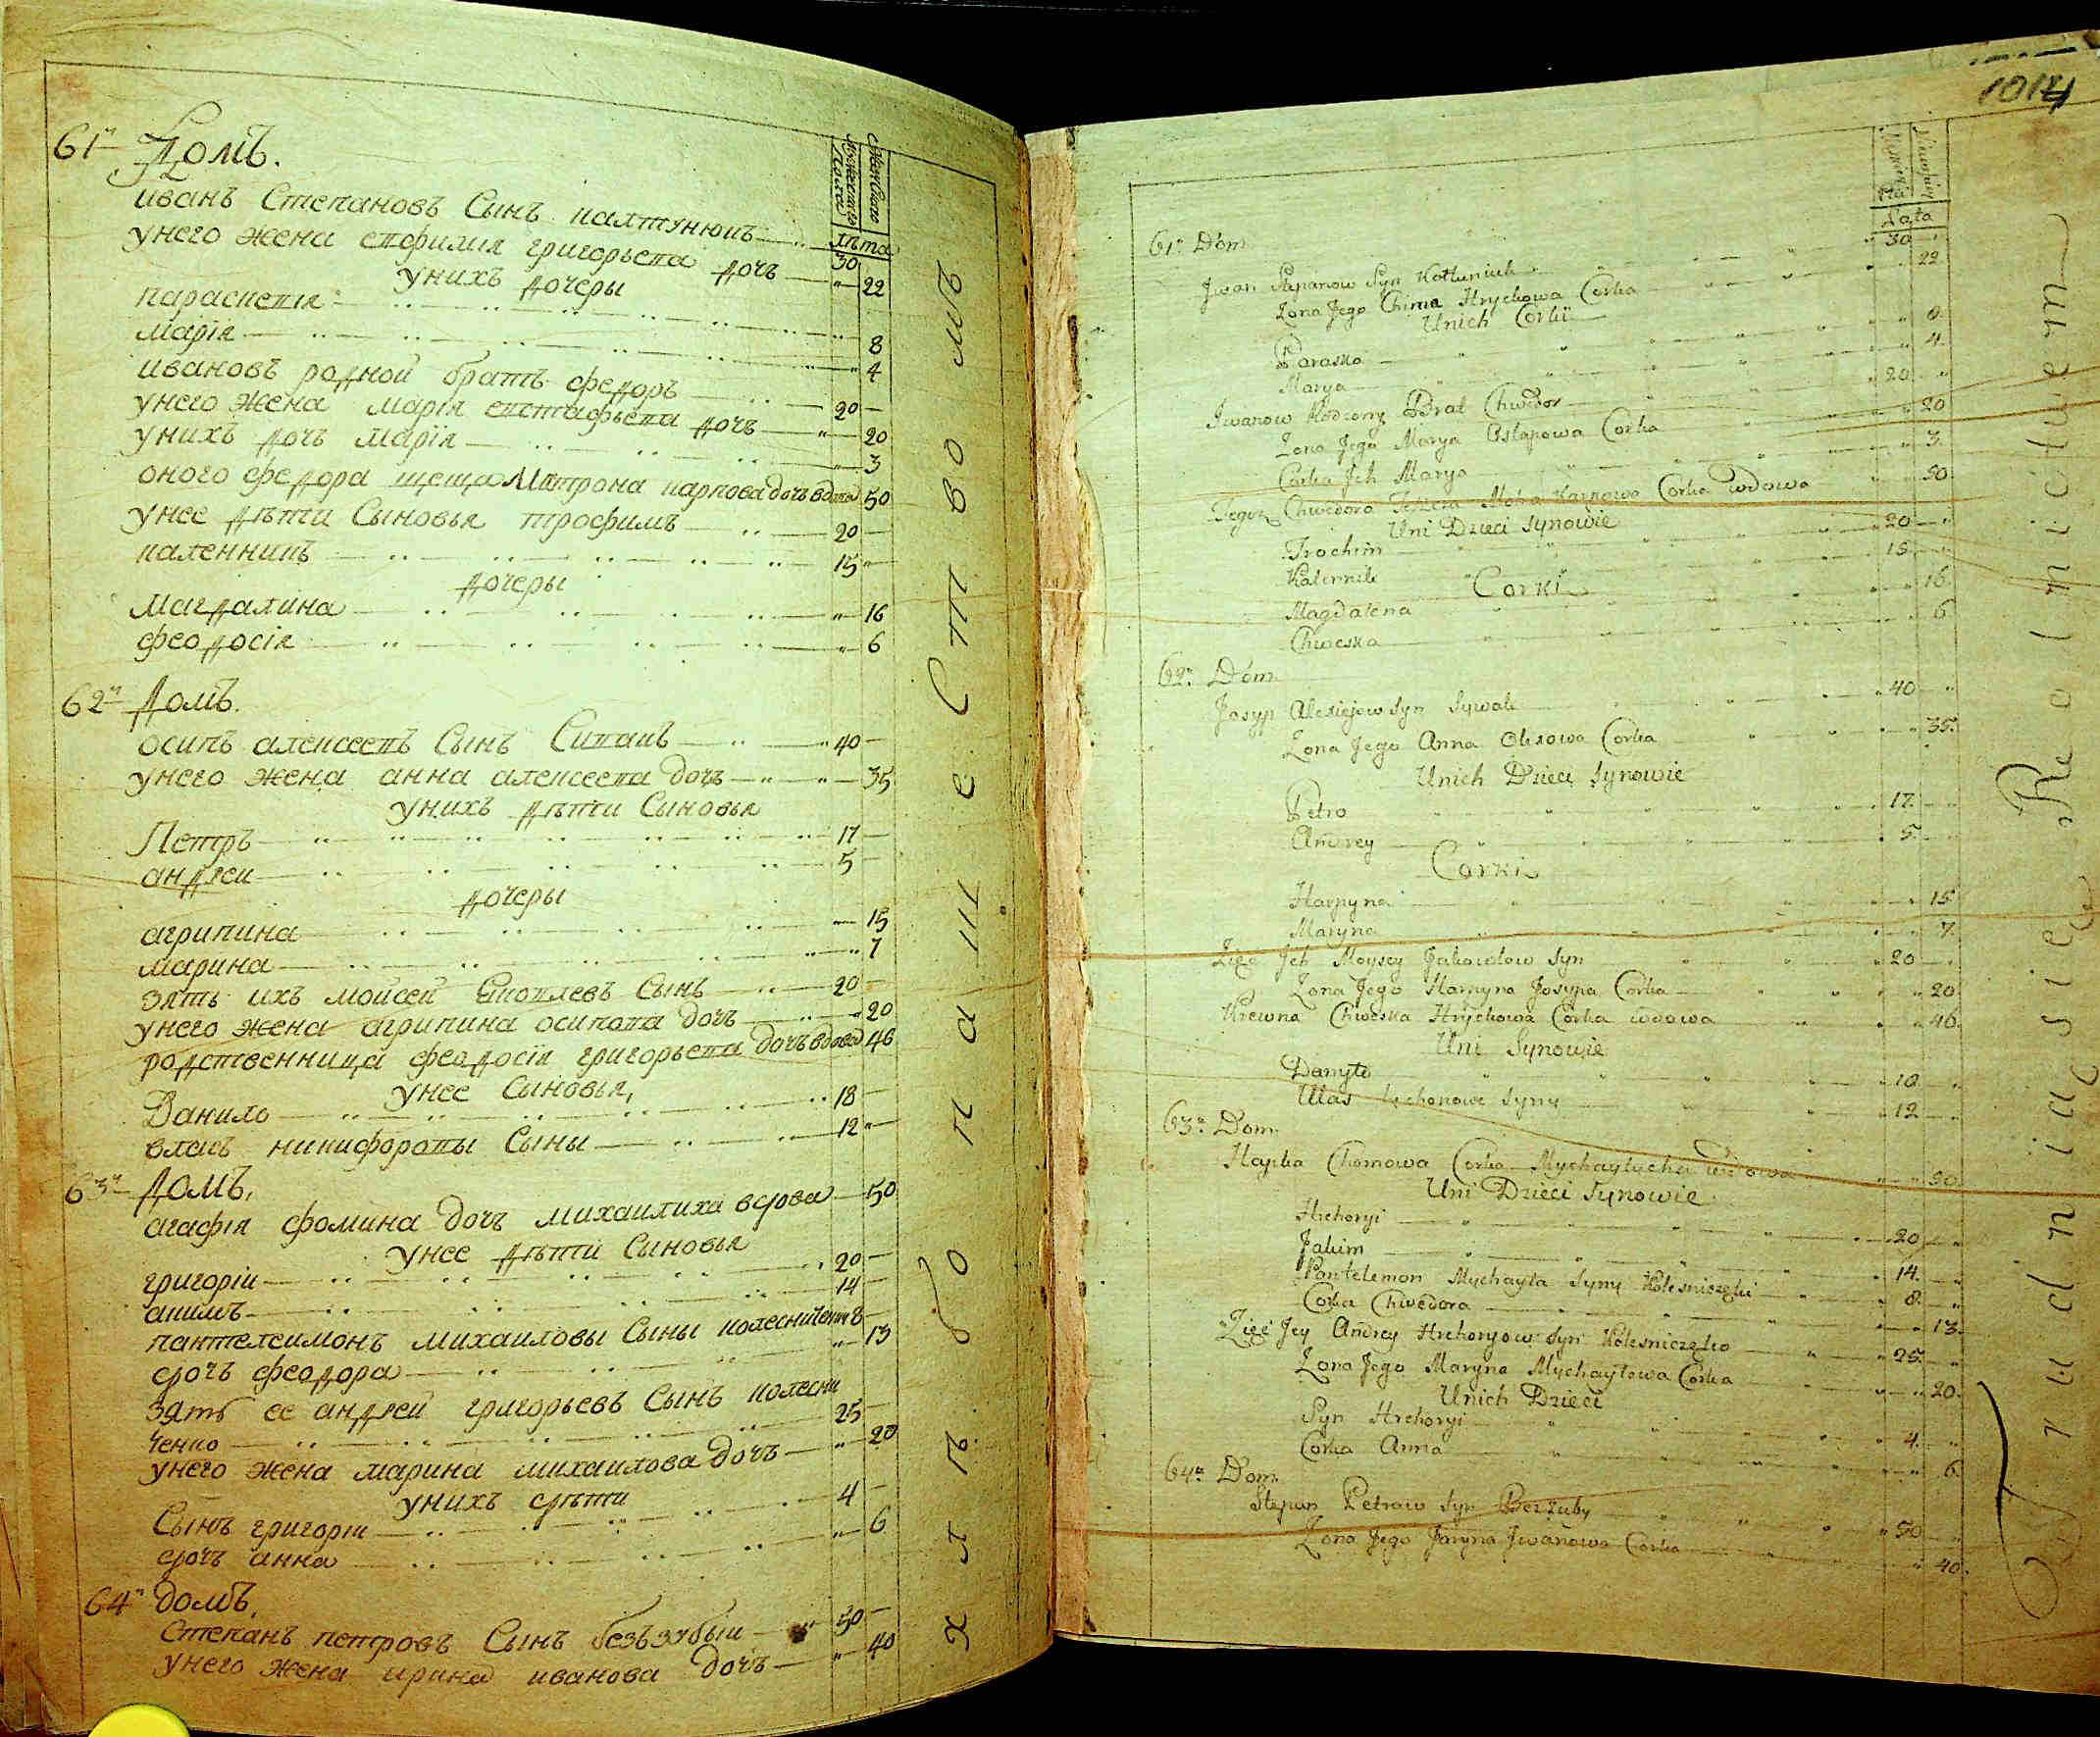 61й Домъ.
Мужескаго Пола
Женскаго
лѣта
иванъ Степановъ Сынъ калтунюкъ 30
унего жена евфимия григорьева дочь 22
унихъ дочеры
параскевия 8
мария 4
ивановъ родной братъ федоръ 20
унего жена мария евстафьева дочь 20
унихъ дочь мария 3
оного федора теща Матрона карпова дочь вдова 50
унее дѣти Сыновья трофимъ 20
каленникъ 15
дочеры
магдалина 16
феодосия 6
62й Домъ.
осипъ алексеевъ Сынъ Сивакъ 40
унего жена анна алексеева дочь 35
унихъ дѣти Сыновья
Петръ 17
андреи 5
дочеры
агрипина 15
марина 7
зять ихъ мойсей яковлевъ Сынъ 20
унего жена агрипина осипова дочь 20
родственница феодосия григорьева дочь вдова 46
унее Сыновья,
Данило 18
власъ никифоровы Сыны 12
63й Домъ,
агафия фомина дочь михаилиха вдова 50
унее дѣти Сыновья
григории 20
акимъ 14
пантелеимонъ михаиловы Сыны колесниченки 8
дочь феодора 13
зять ее андреи григорьевъ Сынъ колесни
ченко 25
унего жена марина михаилова дочь 20
унихъ дѣти
Сынъ григории 4
дочь анна 6
64й домъ,
Степанъ петровъ Сынъ безъзубыи 50
унего жена ирина иванова дочь 40
1014
Lata
61й Dom
Jwan Stepanow Syn Kołtuniuk 30
Zona Jego Chima Hryckowa Corka 22
Unich Corki
Paraska 8
Marya 4
Jwanow Rodzony Brat Chwedor 20
Zona Jego Marya Ostapowa Corka 20
Corka Jch Marya 3
Tegoz Chwedora Teszcza Motra Karpowa Corka wdowa 50
Uni Dzieci Synowie
Trochim 20
Kalennik 15
Corki
Magdalena 16
Chweska 6
62й Dom
Josyp Alexiejow Syn Sywak 40
Zona Jego Anna Olexowa Corka 35
Unich Dzieci Synowie
Petro 17
Andrey 5
Corki
Harpyna 15
Maryna 7
Zięć Jch Moysey Jakowlow Syn 20
Zona Jego Harpyna Josypa Corka 20
Krewna Chweska Hryckowa Corka wdowa 46
Uni Synowie
Danyło 18
Ułas Synny 12
63й Dom
Hapka Chomowa Corka Mychayłycha wdowa 50
Uni Dzieci Synowie
Hrehoryi 20
Jakim 14
Pantelemon Mychayła Syny Kolesniczęki 8
Corka Chwedora 13
Zięć Jey Andrey Hrehoryow Syn Kolesniczęko 25
Zona Jego Maryna Mychayłowa Corka 20
Unich Dzieci
Syn Hrehoryi 4
Corka Anna 6
64й Dom
Stepan Petrow Syn Bezzuby 50
Zona Jego Jaryna Jwanowa Corka 40